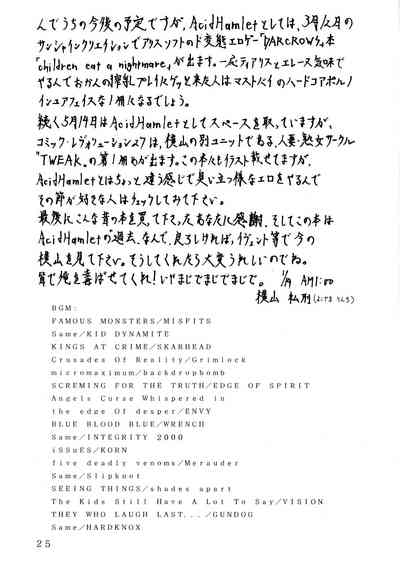 んでうちの今後の予定ですが、AcidHamletとしては、3月12日の
サンシャインクリエイションでアリスソフトのド変態エロゲー「DARCROWS」本
「children eat a nightmare」が出ます。一応ティアリスとエレース気味で
やるんでおかんの搾乳プレイにゲッと来た人はマストバイのハードコアポルノ
インユアフェイスな1冊になるでしょう。
続く5月14日はAcidHamletとしてスペースを取っていますが、
コミック・レヴォリューション27は、横山の別ユニットである、人妻・熟女サークル
「TWEAK」の第1冊めが出ます。この本にもイラスト載せてますが、
AcidHamletとはちょっと違う感じで臭い立つ様なエロをやるんで
その節が好きな人はチェックしておて下さい。
最後にこんな昔の本を買って下さったあなたに感謝、そしてこの本は
AcidHamletの"過去"なんで、良ろしければ、イヴェント等で今の
横山を見て下さい。そうしてくれたら大変うれしいのでね。
耳で俺を喜ばせてくれ!いやまじでまじでまじで。 1/19 AM1:00
横山 私刑(よこやま りんち)
BGM:
FAMOUS MONSTERS/MISFITS
Same/KID DYNAMITE
KINGS AT CRIME/SKARHEAD
Crusades Of Reality/Grimlock
micromaximum/backdropbomb
SCREMING FOR THE TRUTH/EDGE OF SPIRIT
Angels Curse Whispered in
the edge Of desper/ENVY
BLUE BLOOD BLUE/WRENCH
Same/INTEGRITY 2000
iSSuES/KORN
five deadly venoms/Merauder
Same/Slipknot
SEEING THINGS/shades apart
The Kids Still Have A Lot To Say/VISION
THEY WHO LAUGH LAST.../GUNDOG
Same/HARDKNOX
25